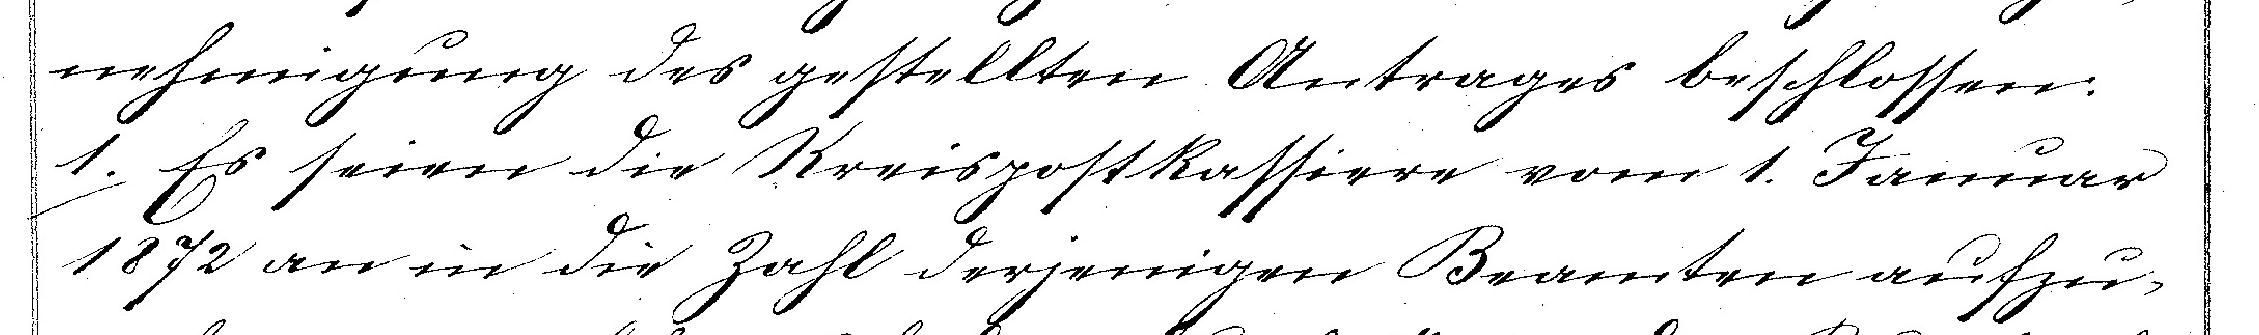 nehmigung des gestellten Antrages beschlossen:
1. Es seien die Kreispostkassiere vom 1. Januar
1872 an in die Zahl derjenigen Beamten aufzu-